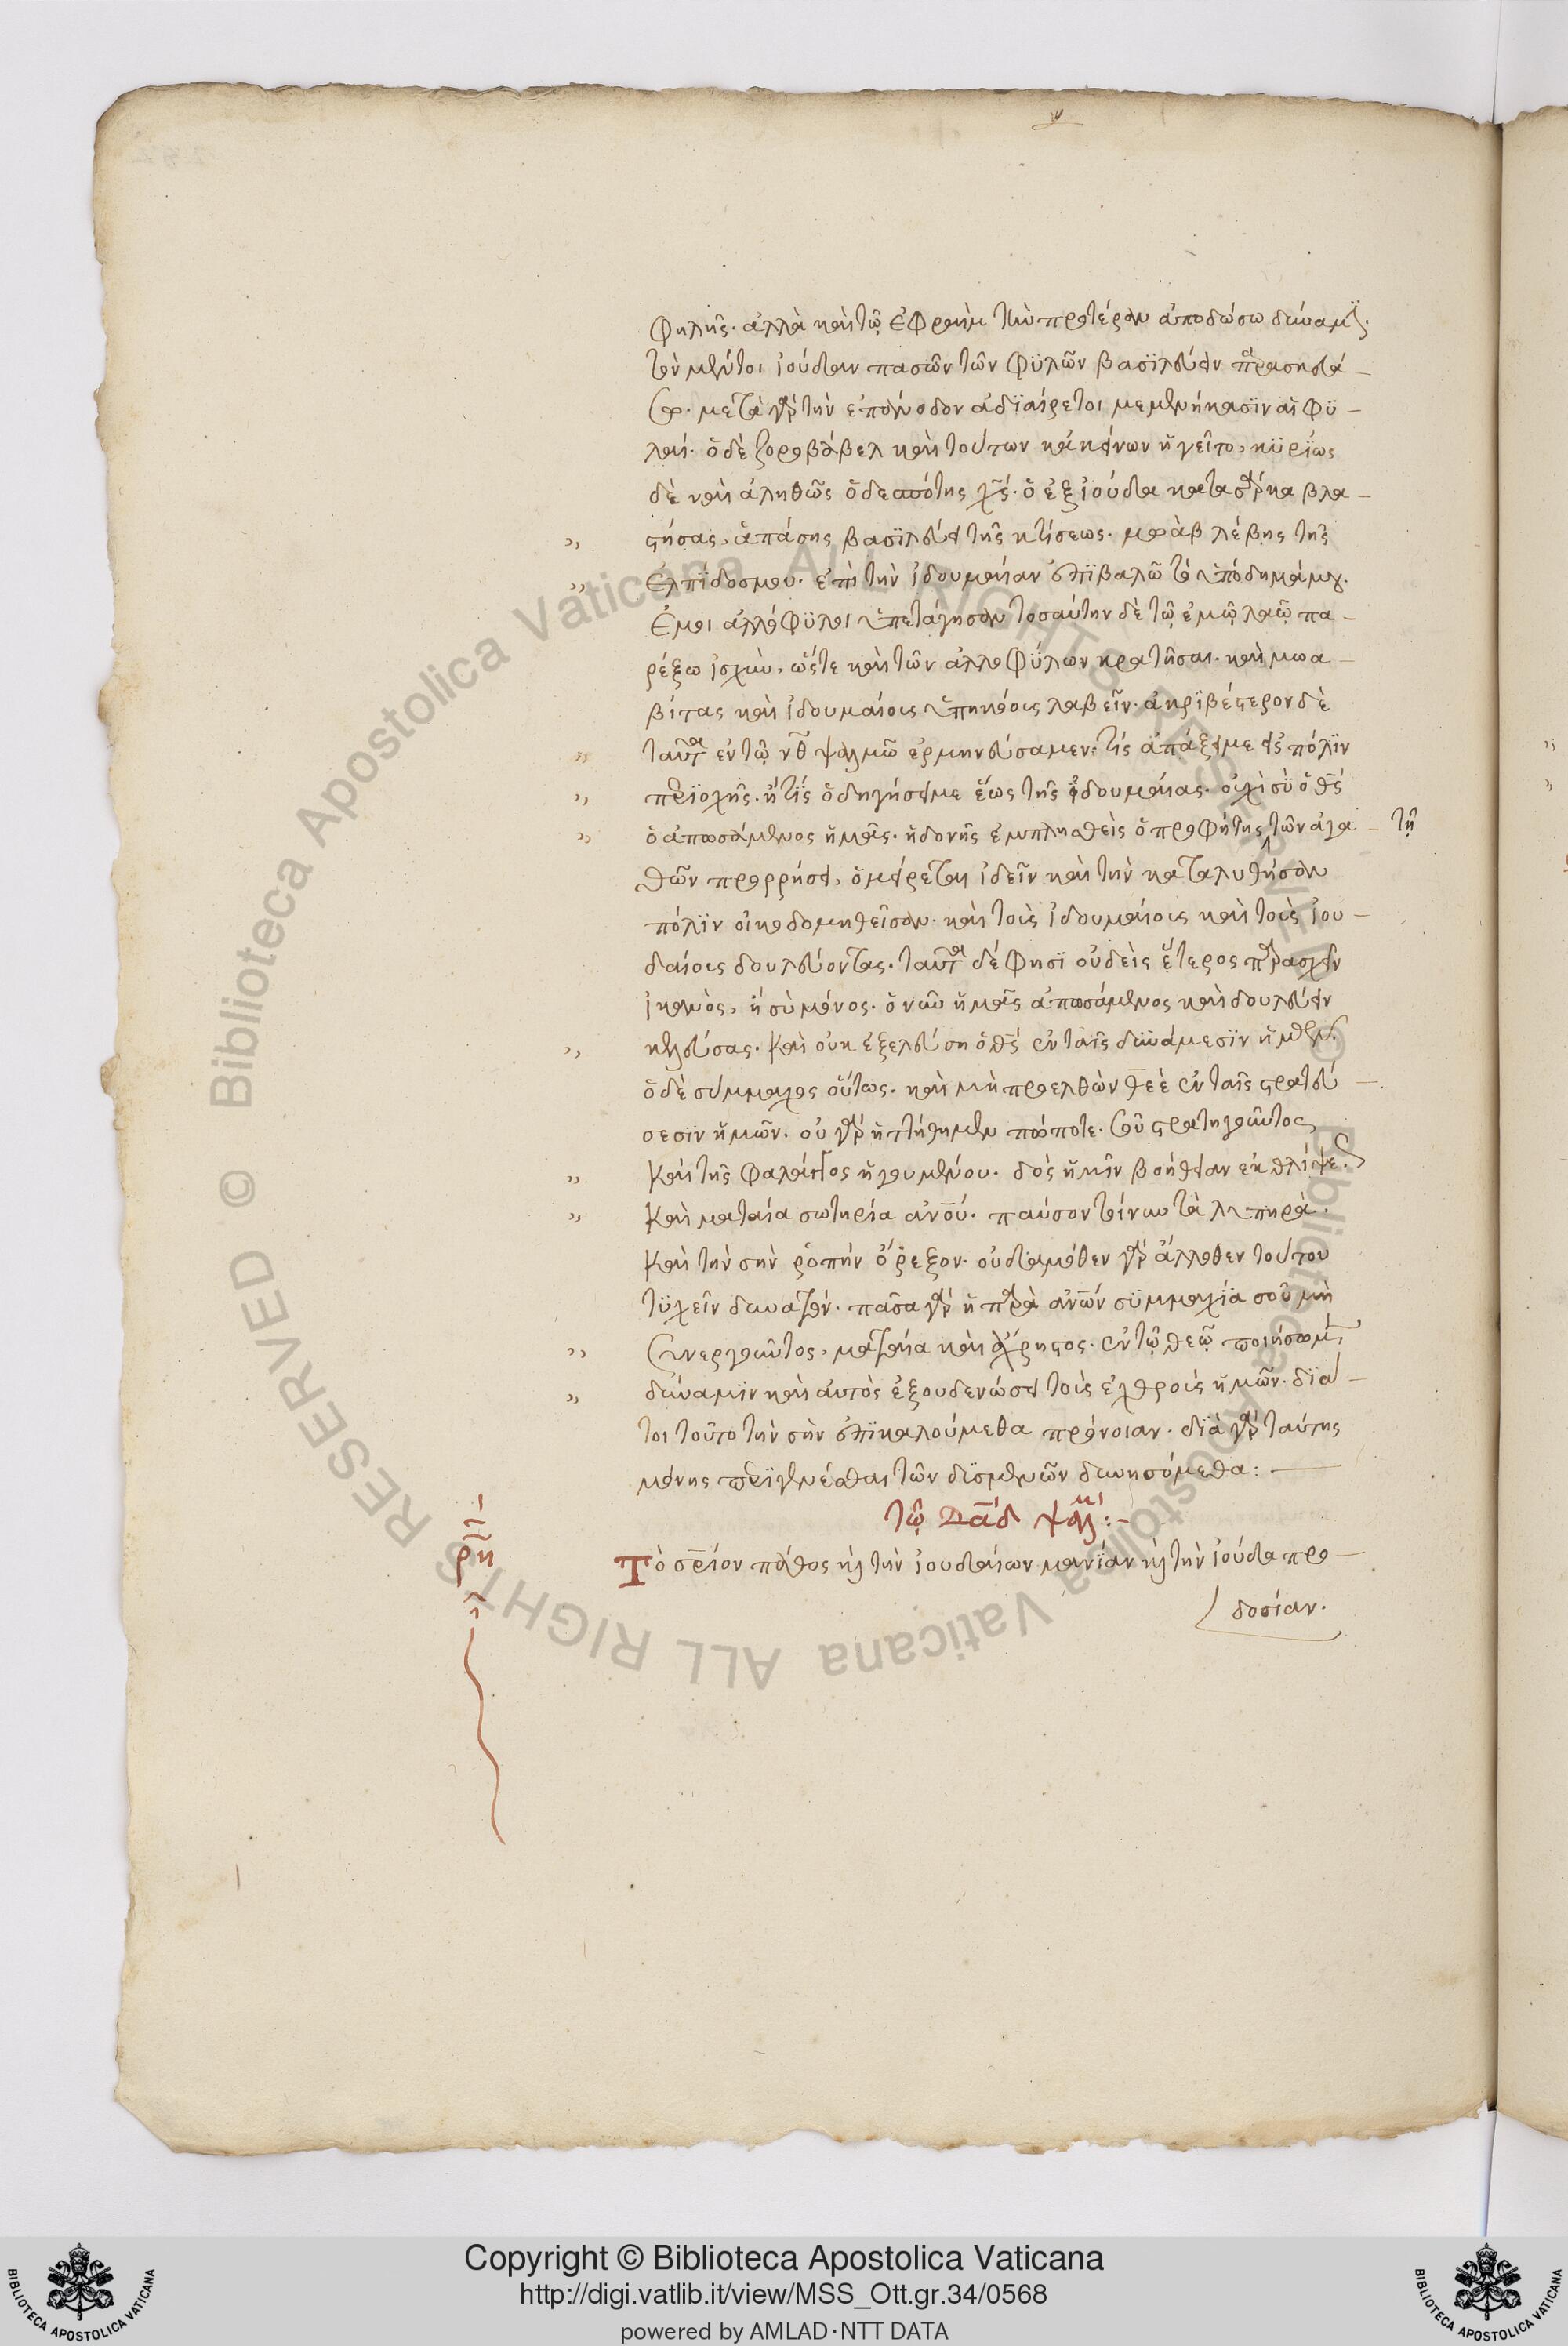 φηλῆς. ἀλλὰ καὶ τῷ ἐφραὶμ τὴν προτέραν ἀποδώσω δύναμιν.
τὸν μέντοι ἰούδαν πασῶν τῶν φϋλῶν βασϊλεύειν παρασκευά-
σω. μετὰ γὰρ τὴν ἐπάνοδον ἀδϊαίρετοι μεμενήκασϊν αἱ φϋ-
λαί. ὁ δὲ ζοροβάβελ καὶ τούτων κἀκείνων ἡγεῖτο, κϋρίως
δὲ καὶ ἀληθῶς ὁ δεσπότης χς. ὁ ἐξ ἰούδα κατὰ σάρκα βλα-
στήσας, ἁπάσης βασϊλεύει τῆς κτίσεως. μωὰβ λέβης τῆς
ἐλπίδος μου. ἐπὶ τὴν ἰδουμαίαν ἐπϊβαλῶ τὸ ὑπόδημά μου.
ἐμοὶ ἀλλόφϋλοι ὑπετάγησαν τοσαύτην δὲ τῷ ἐμῷ λαῷ πα-
ρέξω ἰσχὺν, ὥστε καὶ τῶν ἀλλοφύλων κρατῆσαι. καὶ μωα-
βίτας καὶ ἰδουμαίοις ὑπηκόοις λαβεῖν. ἀκρϊβέστερον δὲ
ταῦτα ἐν τῷ νθ ψαλμῷ ἑρμηνεύσαμεν. τίς ἀπάξει με εἰς πόλϊν
περϊοχῆς. ἢ τίς ὁδηγήσει με ἕως τῆς ἰδουμαίας. οὐχὶ σὺ ὁ θς
ὁ ἀπωσάμενος ἡμᾶς. ἡδονῆς ἐμπλησθεὶς ὁ προφήτης τῶν ἀγα- τῇ
θῶν προρρήσει, ὁμείρεται ἰδεῖν καὶ τὴν καταλυθήσαν
πόλϊν οἰκοδομηθεῖσαν. καὶ τοὺς ἰδουμαίοις καὶ τοῖς ἰου-
δαίοις δουλεύοντας. ταῦτα δέ φησϊ οὐδεὶς ἕτερος παρασχεῖν
ἱκανὸς, ἢ σὺ μόνος. ὁ νῦν ἡμᾶς ἀπωσάμενος καὶ δουλεύειν
κελεύσας. καὶ οὐκ ἐξελεύση ὁ θς ἐν ταῖς δυνάμεσϊν ἡμῶν.
ὁ δὲ σύμμαχος οὕτως. καὶ μὴ προελθὼν θεὲ ἐν ταῖς στρατεύ-
σεσϊν ἡμῶν. οὐ γὰρ ἡττήθημεν πώποτε. σοῦ στρατηγοῦντος
καὶ τῆς φάλαγγος ἡγουμένου. δὸς ἡμῖν βοήθειαν ἐκ θλίψεως
καὶ ματαία σωτηρία ἀνου. παῦσον τοίνυν τὰ λυπηρὰ.
καὶ τὴν σὴν ῥοπήν ὄρεξον. οὐδαμόθεν γὰρ ἄλλοθεν τούτου
τϋχεῖν δυνατόν. πᾶσα γὰρ ἡ παρὰ ἀνων σϋμμαχία σοῦ μὴ
συνεργοῦντος, ματαία καὶ ἄχρηστος. ἐν τῷ θεῷ ποιήσωμεν
δύναμϊν καὶ αὐτὸς ἐξουδενώσει τοὺς ἐχθροὺς ἡμῶν. δϊά-
τοι τοῦτο τὴν σὴν ἐπϊκαλούμεθα πρόνοιαν. δϊὰ γὰρ ταύτης
μόνης περϊγενέσθαι τῶν δϋσμενῶν δυνησόμεθα:
τῷ Δαδ ψαλμ:-
ρη
Τὸ σριον πάθος καὶ τὴν ἰουδαίων μανϊάν καὶ τὴν ἰούδα προ-
δοσίαν.
Copyright © Biblioteca Apostolica Vaticana
http://digi.vatlib.it/view/MSS_Ott.gr.34/0568
powered by AMLAD·NTT DATA
BIBLIOTECA APOSTOLICA VATICANA
BIBLIOTECA APOSTOLICA VATICANA
© Biblioteca Apostolica Vaticana ALL RIGHTS RESERVED
© Biblioteca Apostolica Vaticana ALL RIGHTS RESERVED